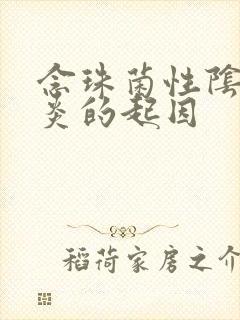 念珠菌性陰
炎的起因
稻荷家房之介